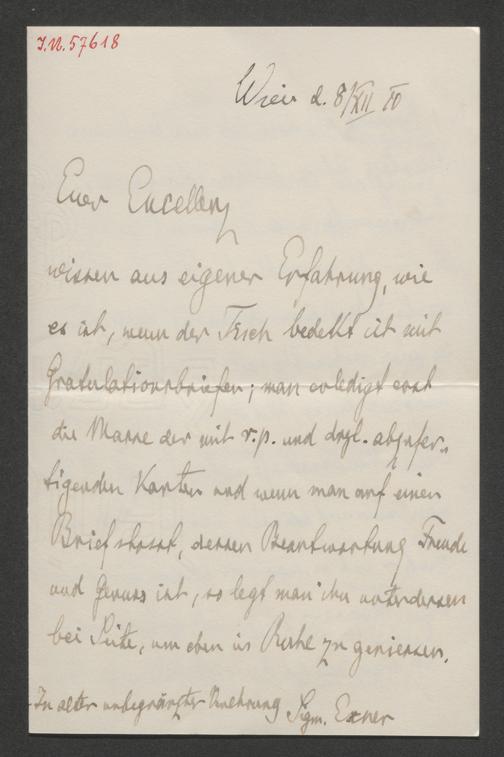 I.N. 57618
Wien d. 8/XII 10
Euer Excellenz
wissen aus eigener Erfahrung, wie
es ist, wenn der Tisch bedekt ist mit
Gratulationsbriefen; man erledigt erst
die Masse der mit r.p. und drgl. abzufer-
tigenden Karten und wenn man auf einen
Brief stosst, dessen Beantwortung Freude
und Genuss ist, so legt man ihn unterdessen
bei Seite, um eben in Ruhe zu geniessen.
In alter unbegränzter Verehrung Sigm. Exner